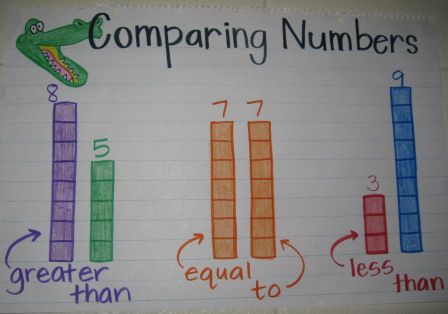 Comparing Numbers
8 5
7 7
3 9
greater
than
equal
to
less
than